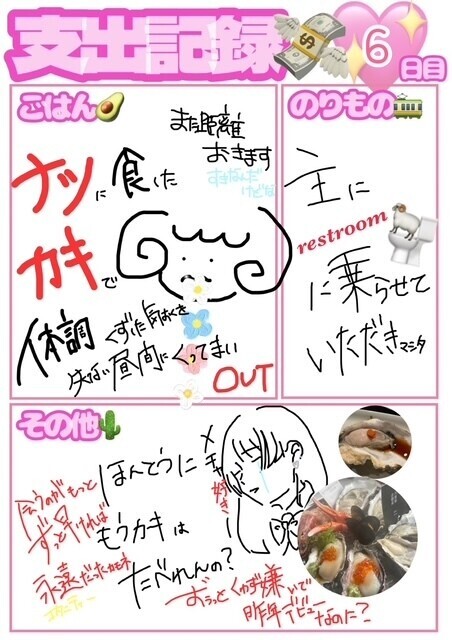 支出記録
6日目
ごはん
また距離
おきます
すきなんだ
けどな
ナツに食した
カキで
体調くずした気はくを
失ない昼間にくってまい
OUT
のりもの
主に
restroom
に乗らせて
いただきマシタ
その他
ほんとうに
もうカキは
たべれんの?
メチャ
好き
会うのがもっと
ずっと早ければ
永遠だったカモネ
エタニティー
ずっとくわず嫌いで
昨年デビュー
なのに?